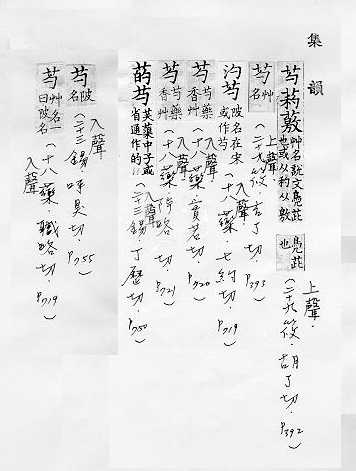 集韻
芍䓎敷 艸名說文鳧茈也或从𥾣从敷 鳧茈也 上聲.(二十九筱.胡了切.P392)
芍 艸名 上聲(二十九筱.吉了切.P393)
汋芍 陂名在宋或作芍 入聲(十八藥.七約切.P719)
芍 芍藥香艸 入聲(十八藥.實若切.P720)
芍 芍藥香艸 入聲(十八藥.切.P721)
菂芍 芙蕖中子或省通作的 入聲(二十三錫.丁歷切.P750)
芍 陂名 入聲(二十三錫.切.P755)
芍 艸名一曰陂名 入聲(十八藥.職略切.P719)